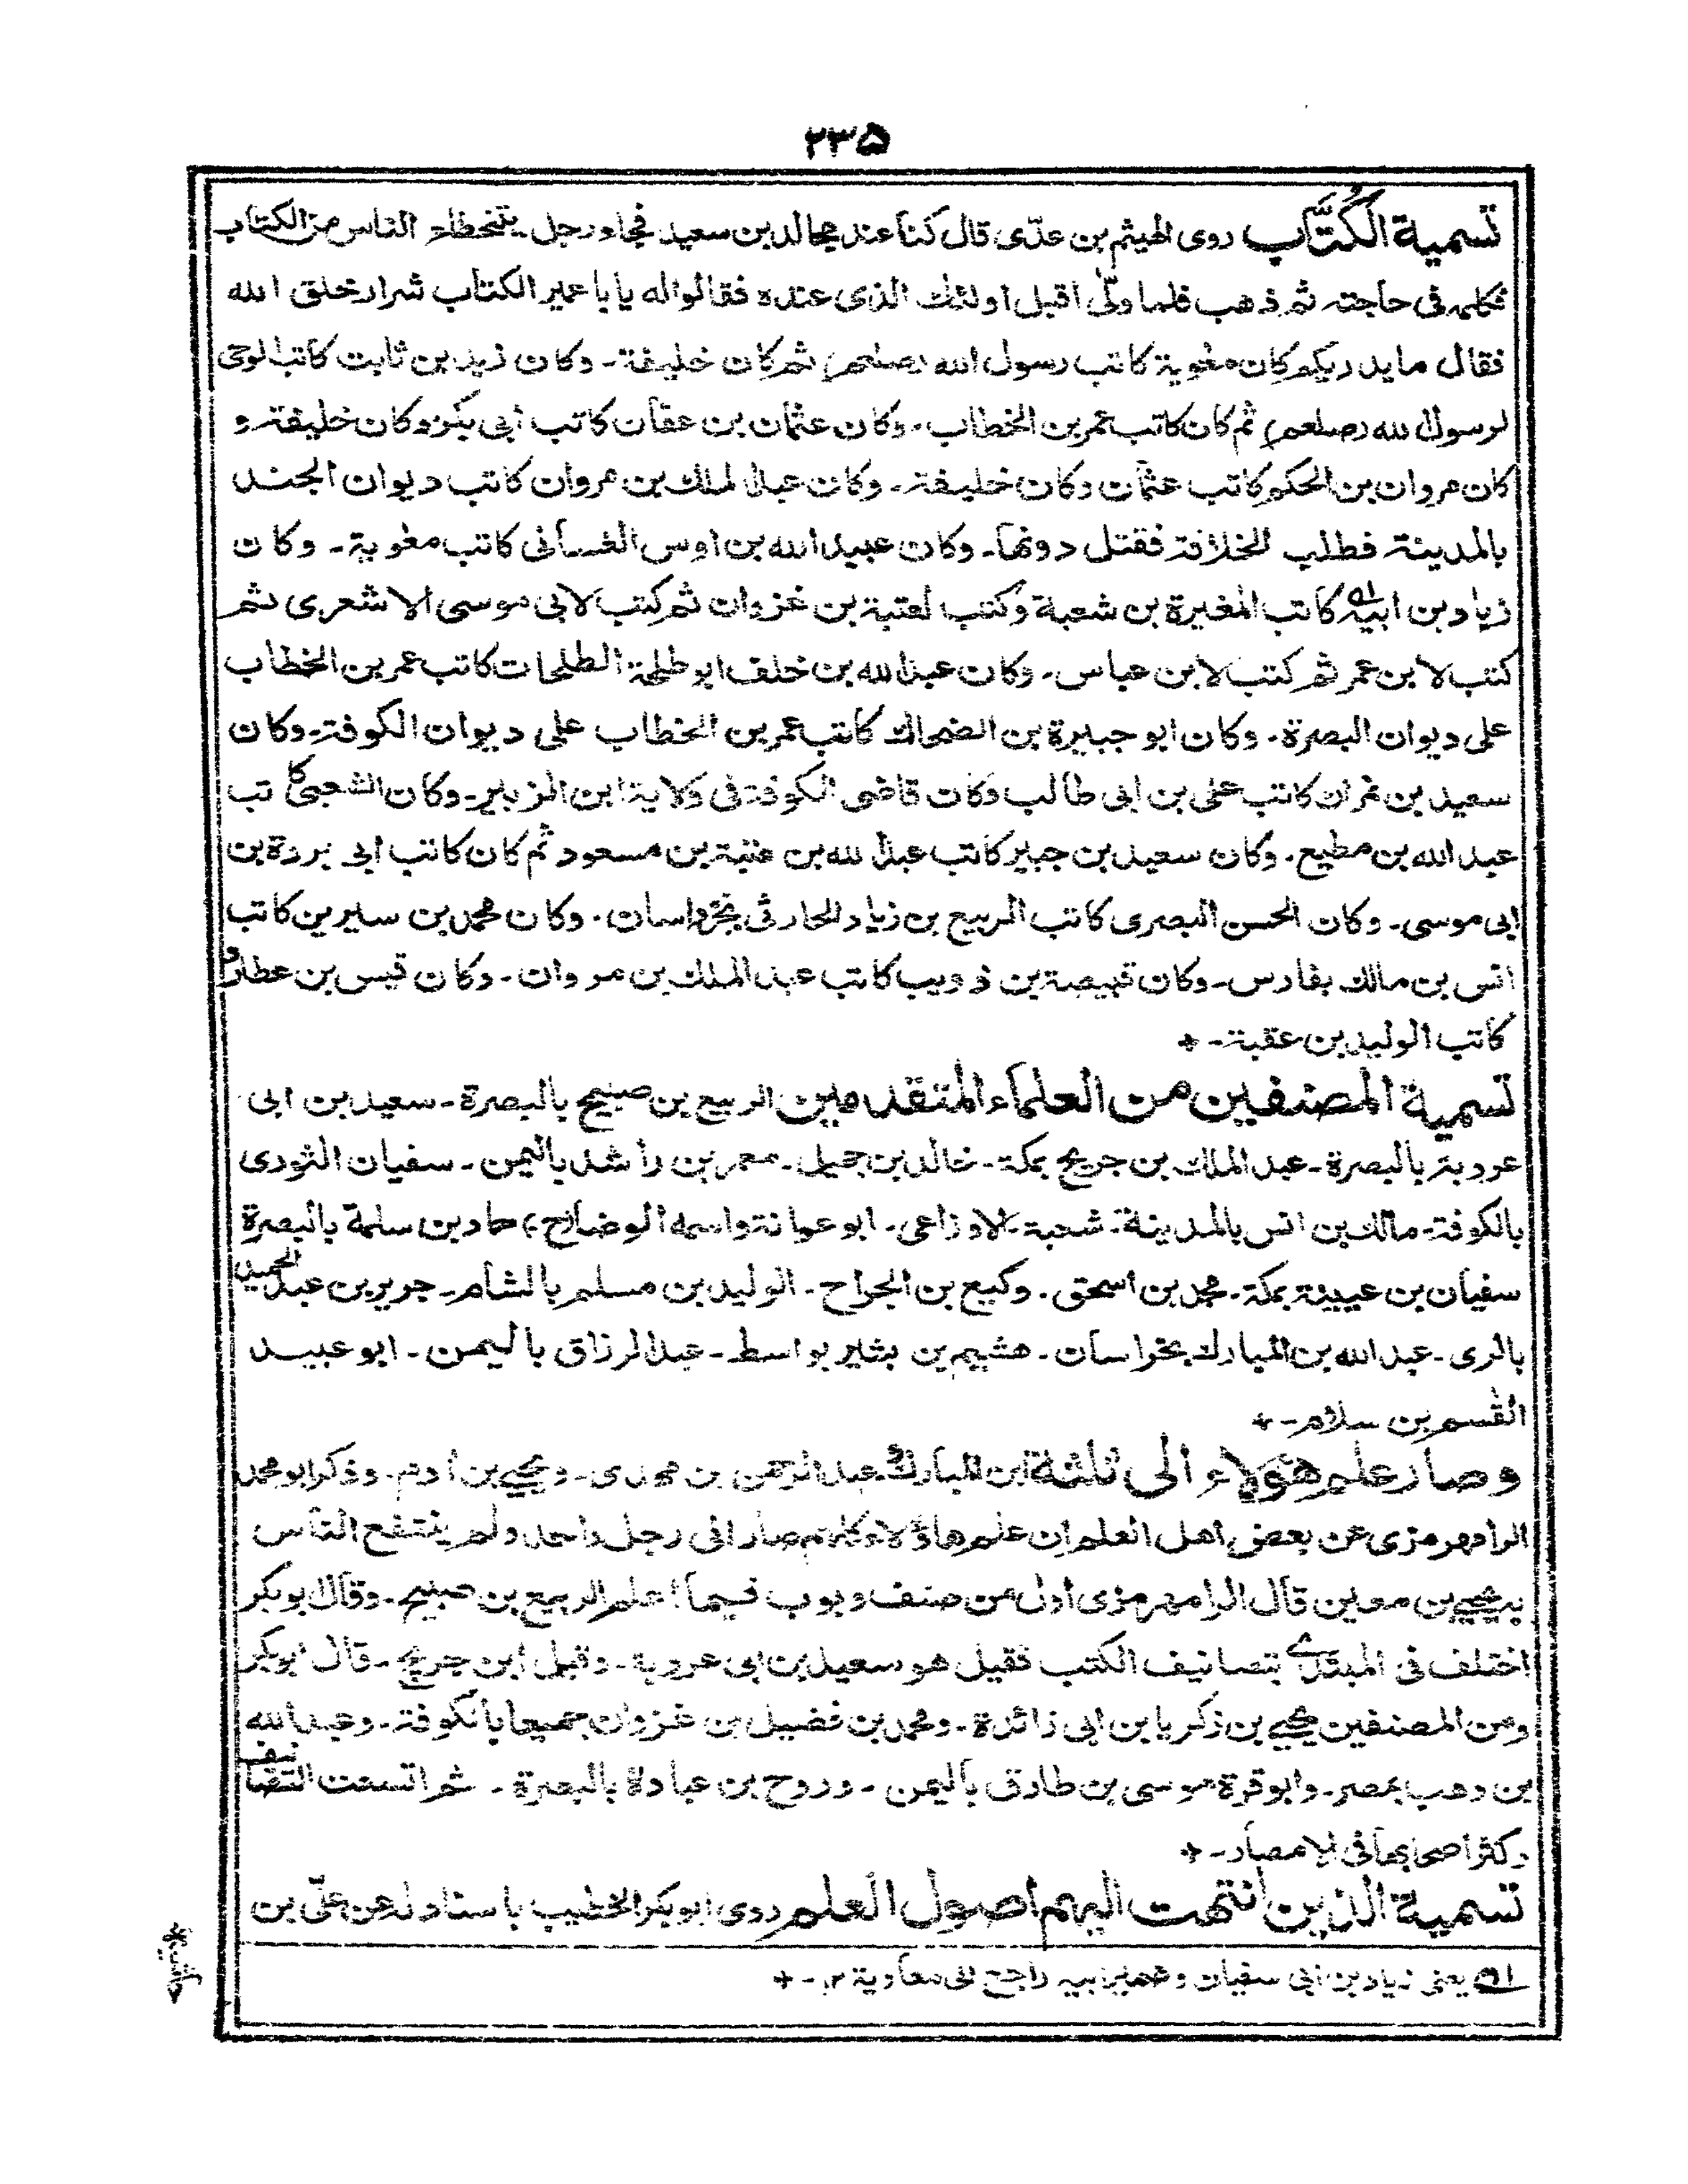 ٢٣٥
تسمية الكُتَّاب روى الهيثم بن عدّى قال كنا عند مجالد بن سعيد فجاء رجل يتخطاء الناس من الكتاب
فكلمه فى حاجته ثم ذهب فلما ولّى اقبل اولئك الذى عنده فقالواله يابا عمير الكتاب شرار خلق الله
فقال مايدريكم كان معوية كاتب رسول الله (صلعم) ثم كان خليفة۔ وكان زيد بن ثابت كاتب الوحى
لرسول الله (صلعم) ثم كان كاتب عمر بن الخطاب۔ وكان عثمان بن عفان كاتب ابى بكر وكان خليفة و
كان مروان بن الحكم كاتب عثمان وكان خليفة۔ وكان عبد الملك بن مروان كاتب ديوان الجند
بالمدينة فطلب الخلافة فقتل دونها۔ وكان عبيد الله بن اوس الغسانى كاتب معوية۔ وكان
زياد بن ابيه ١ كاتب المغيرة بن شعبة وكتب لعتبة بن غزوان ثم كتب لابى موسى الاشعرى ثم
كتب لابن عمر ثم كتب لابن عباس۔ وكان عبد الله بن خلف ابو طلحة الطلحات كاتب عمر بن الخطاب
على ديوان البصرة۔ وكان ابو جبيرة بن الضحاك كاتب عمر بن الخطاب على ديوان الكوفة۔ وكان
سعيد بن نمران كاتب على بن ابى طالب وكان قاضى الكوفة فى ولاية ابن الزبير۔ وكان الشعبى كاتب
عبد الله بن مطيع۔ وكان سعيد بن جبير كاتب عبد الله بن عتبة بن مسعود ثم كان كاتب ابى بردة بن
ابى موسى۔ وكان الحسن البصرى كاتب الربيع بن زياد الحارثى بخراسان۔ وكان محمد بن سيرين كاتب
انس بن مالك بفارس۔ وكان قبيصة بن ذويب كاتب عبد الملك بن مروان۔ وكان قيس بن عطارد
كاتب الوليد بن عقبة۔ +
تسمية المصنفين من العلماء المتقدمين الربيع بن صبيح بالبصرة۔ سعيد بن ابى
عروبة بالبصرة۔ عبد الملك بن جريج بمكة۔ خالد بن جميل۔ معمر بن راشد باليمن۔ سفيان الثورى
بالكوفة۔ مالك بن انس بالمدينة۔ شعبة۔ الاوزاعى۔ ابو عوانة واسمه الوضاح، حماد بن سلمة بالبصرة
سفيان بن عيينة بمكة۔ محمد بن اسحق۔ وكيع بن الجراح۔ الوليد بن مسلم بالشام۔ جرير بن عبد الحميد
بالرى۔ عبد الله بن المبارك بخراسان۔ هشيم بن بشير بواسط۔ عبد الرزاق باليمن۔ ابو عبيد
القسم بن سلام۔ +
وصار علم هؤلاء الى ثلثة ابن المبارك و عبد الرحمن بن مهدى۔ ويحيى بن ادم۔ وذكر ابو محمد
الرامهرمزى عن بعض اهل العلم ان علم هاؤلاء كلهم صار الى رجل واحد ولم ينتفع الناس
بيحيى بن معين قال الرامهرمزى اول من صنف وبوب فيما اعلم الربيع بن صبيح۔ وقال ابو بكر
اختلف فى المبتدى بتصانيف الكتب فقيل هو سعيد بن ابى عروبة۔ وقيل ابن جريج۔ قال ابو بكر
ومن المصنفين يحيى بن زكريا بن ابى زائدة۔ ومحمد بن فضيل بن غزوان جميعا بالكوفة۔ وعبد الله
بن وهب بمصر۔ وابو قرة موسى بن طارق باليمن۔ وروح بن عبادة بالبصرة۔ ثم اتسعت التصانيف
وكثر اصحابها فى الامصار۔ +
تسمية الذين انتهت اليهم اصول العلم روى ابو بكر الخطيب باسناد له عن علّى بن
١ يعنى زياد بن ابى سفيان وضمير ابيه راجع الى معاوية ١٢۔ +